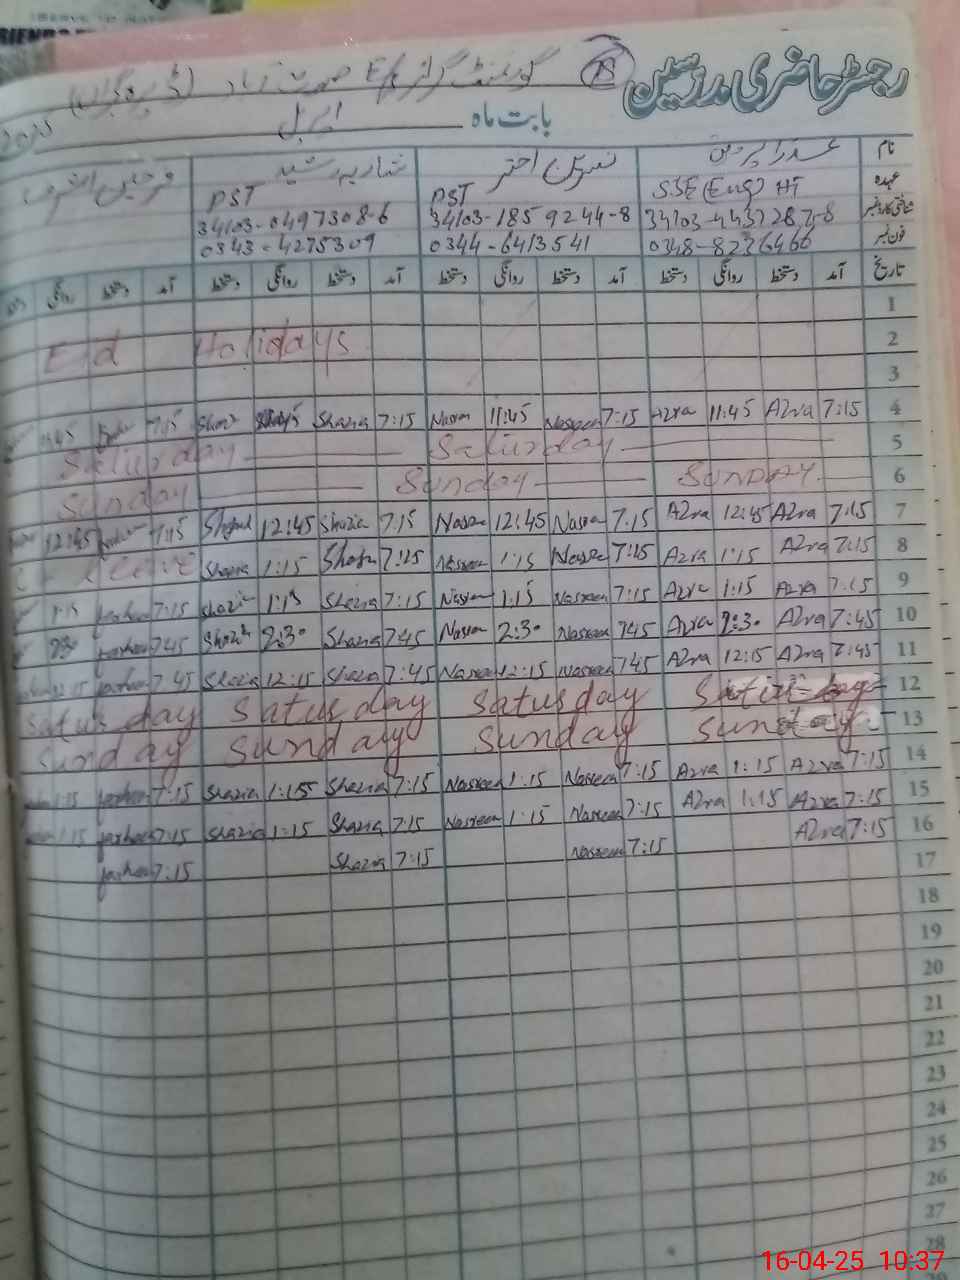 رجسٹر حاضری مدرسین
B گورنمنٹ گرلز E/S
بابت ماہ اپریل 2025
نام
عہدہ SSE (Eng) HT PST PST
شناختی کارڈ نمبر 34103-4437287-8 34103-1859244-8 34103-0497308-6
فون نمبر 0348-8236466 0344-6413541 0343-4275309
نسرین اختر شازیہ رشید
تاریخ آمد دستخط روانگی دستخط آمد دستخط روانگی دستخط آمد دستخط روانگی دستخط آمد دستخط روانگی
1
2 Eid Holidays
3
4 7:15 Azra 11:45 Azra 7:15 Nasreen 11:45 Nasren 7:15 Shazia Shazia 7:15
5 Saturday Saturday
6 SUNDAY Sunday Sunday
7 7:15 Azra 12:45 Azra 7:15 Nasree 12:45 Nasree 7:15 Shazia 12:45 7:15 12:45
8 7:15 Azra 1:15 Azra 7:15 Nasree 1:15 Nasreen 7:15 Shazia 1:15 Shazia Leave
9 7:15 Azra 1:15 Azra 7:15 Nasreen 1:15 Nasreen 7:15 Shazia 1:15 Shazia 7:15 Farhen 1:15
10 7:45 Azra 2:30 Azra 745 Nasreen 2:30 Nasren 745 Shazia 2:30 Shazia 745 Farhen 230
11 7:45 Azra 12:15 Azra 745 Nasreen 12:15 Nasreen 7:45 Shazia 12:15 Shazia 7 45 Farhen 12:15
12 Saturday Saturday Saturday Saturday
13 Sunday Sunday Sunday Sunday
14 7:15 Azra 1:15 Azra 7:15 Nasreen 1:15 Nasreen 7:15 Shazia 1:15 Shazia 7:15 Farhen 1:15
15 7:15 Azra 1:15 Azra 7:15 Nasreen 1:15 Nasreen 7:15 Shazia 1:15 Shazia 7:15 Farhen 1:15
16 7:15 Azra 7:15 Nasreen 7:15 Shazia 7:15 Farhen
17
18
19
20
21
22
23
24
25
26
27
28
16-04-25 10:37